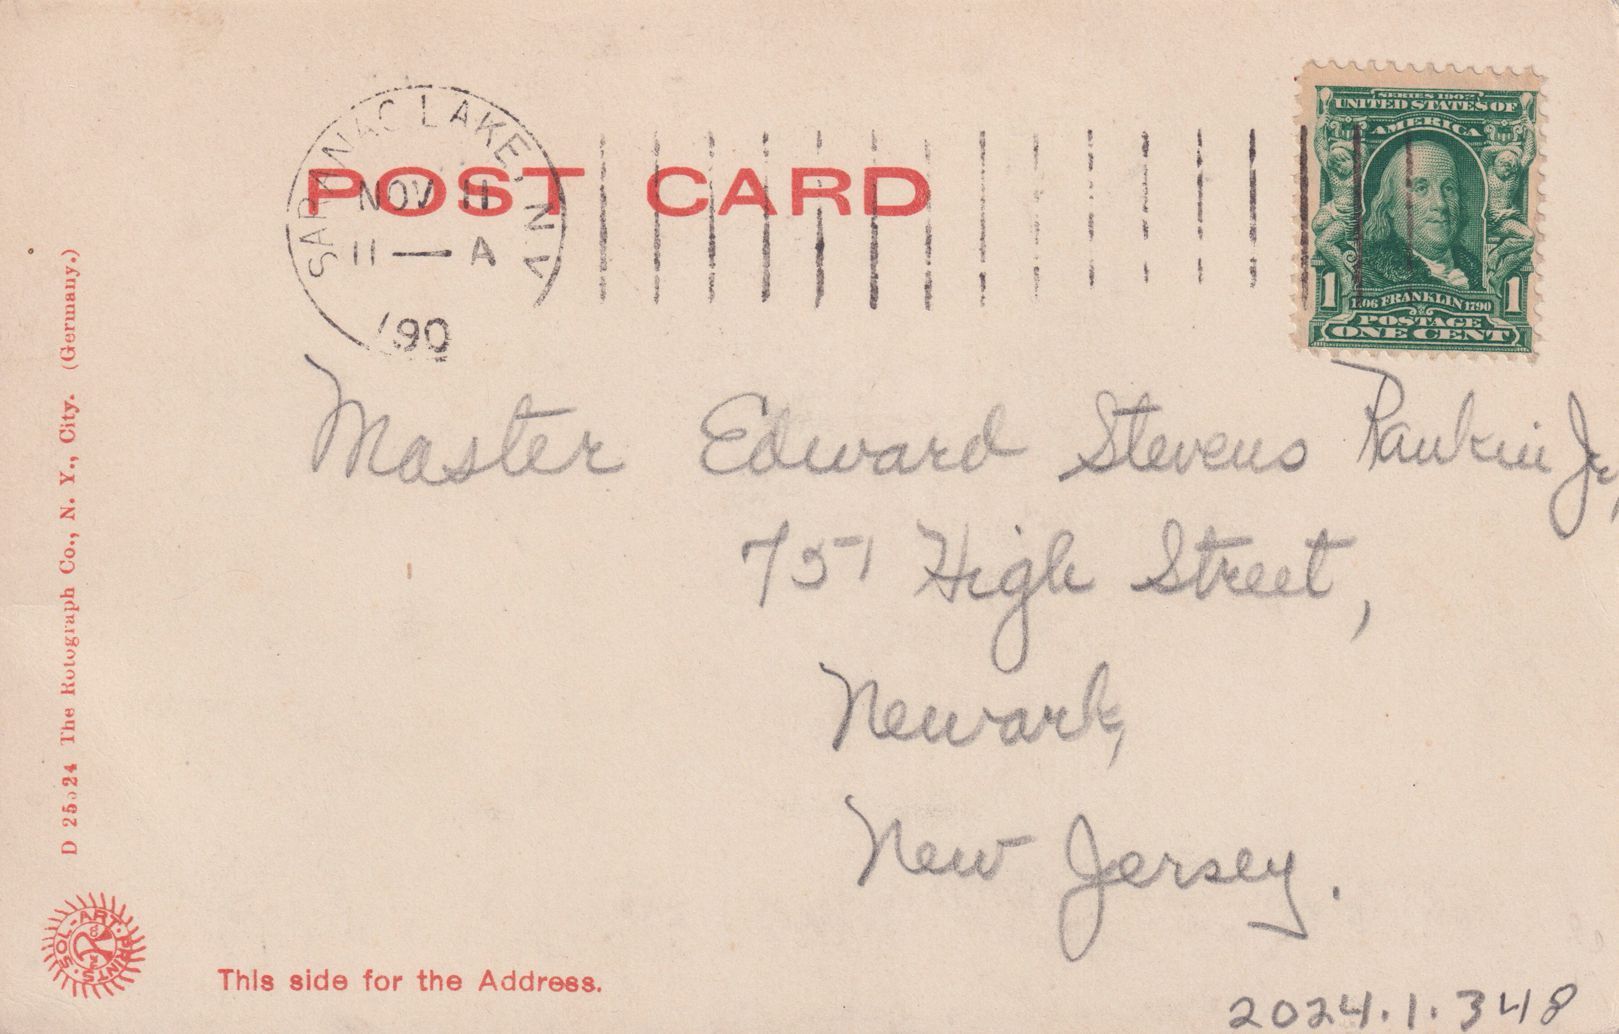 SARANAC LAKE, N.Y.
NOV 11
11 — A
190
POST CARD
SERIES 1902
UNITED STATES OF
AMERICA
1 1706 FRANKLIN 1790 1
POSTAGE
ONE CENT
Master Edward Stevens Rankin Jr,
751 High Street,
Newark,
New Jersey.
The Rotograph Co., N. Y., City. (Germany.)
SOL-ART-PRINTS
This side for the Address.
2024.1.348